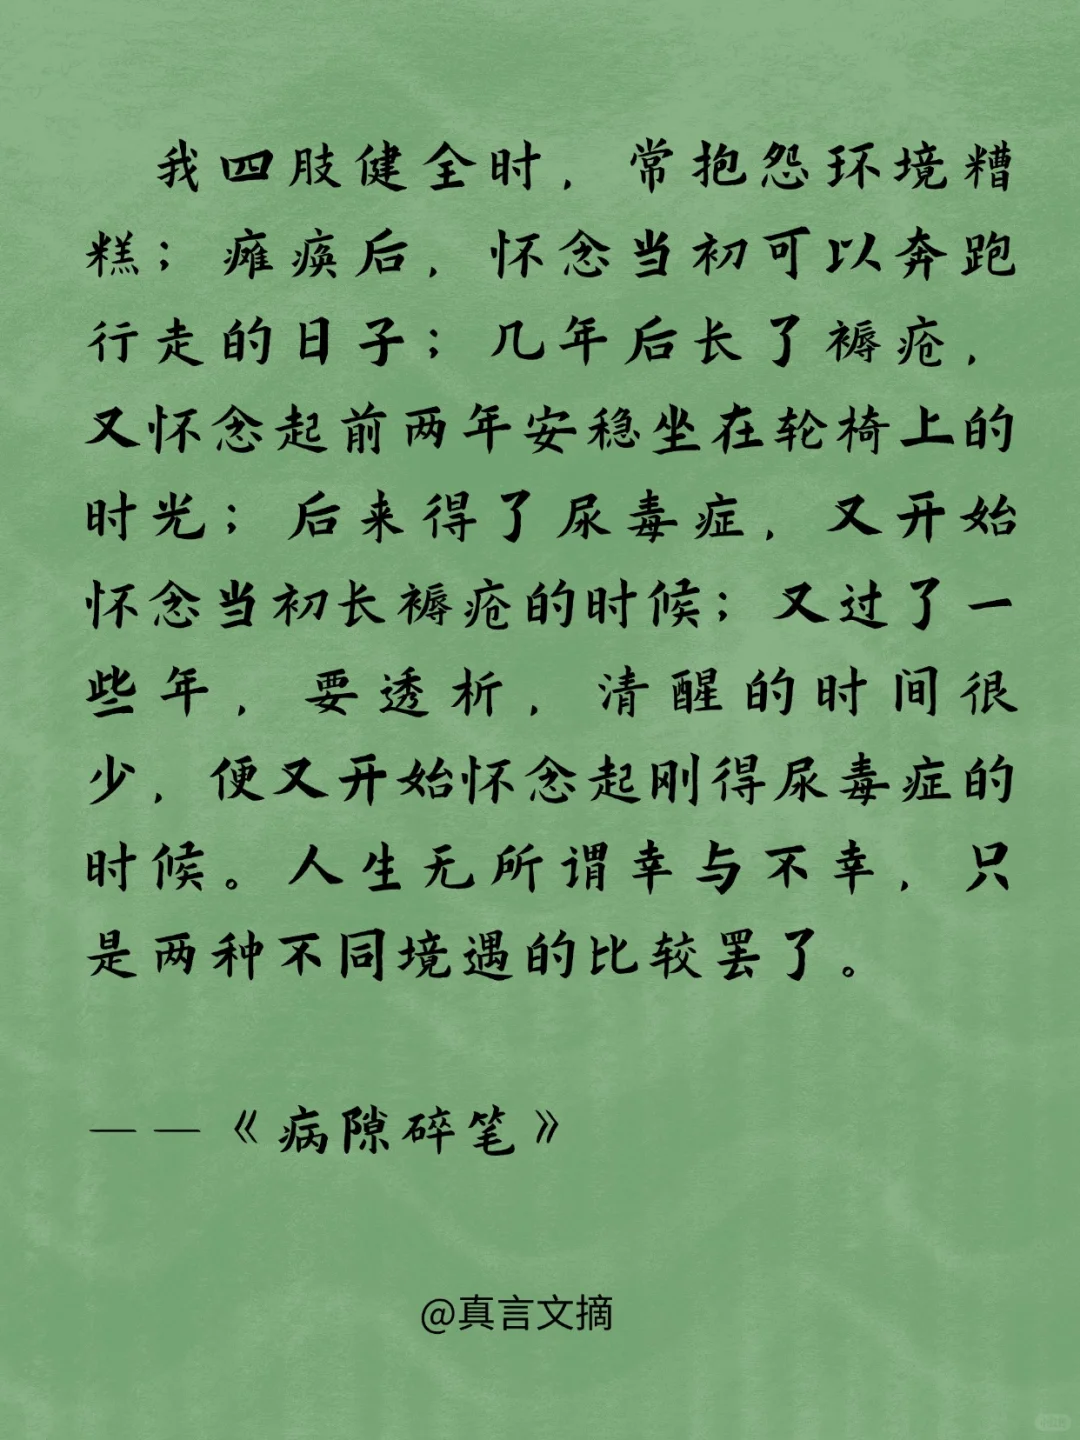 我四肢健全时，常抱怨环境糟
糕；瘫痪后，怀念当初可以奔跑
行走的日子；几年后长了褥疮，
又怀念起前两年安稳坐在轮椅上的
时光；后来得了尿毒症，又开始
怀念当初长褥疮的时候；又过了一
些年，要透析，清醒的时间很
少，便又开始怀念起刚得尿毒症的
时候。人生无所谓幸与不幸，只
是两种不同境遇的比较罢了。
——《病隙碎笔》
@真言文摘